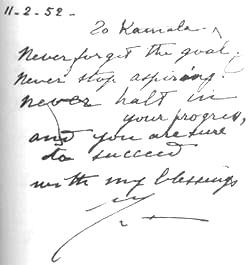 11-2-52-
To Kamala-
Never forget the goal,
Never stop aspiring!
Never halt in
your progress,
and you are sure
to succeed
with my blessings